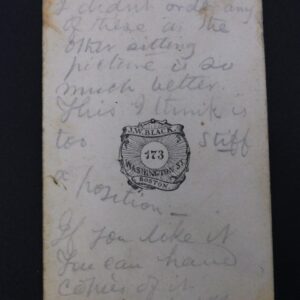 I didn't order any
of these as the
other sitting
picture is so
much better.
This I think is
too stiff
J.W. BLACK.
173
WASHINGTON ST
BOSTON
a position –
If you like it
You can have
copies of it